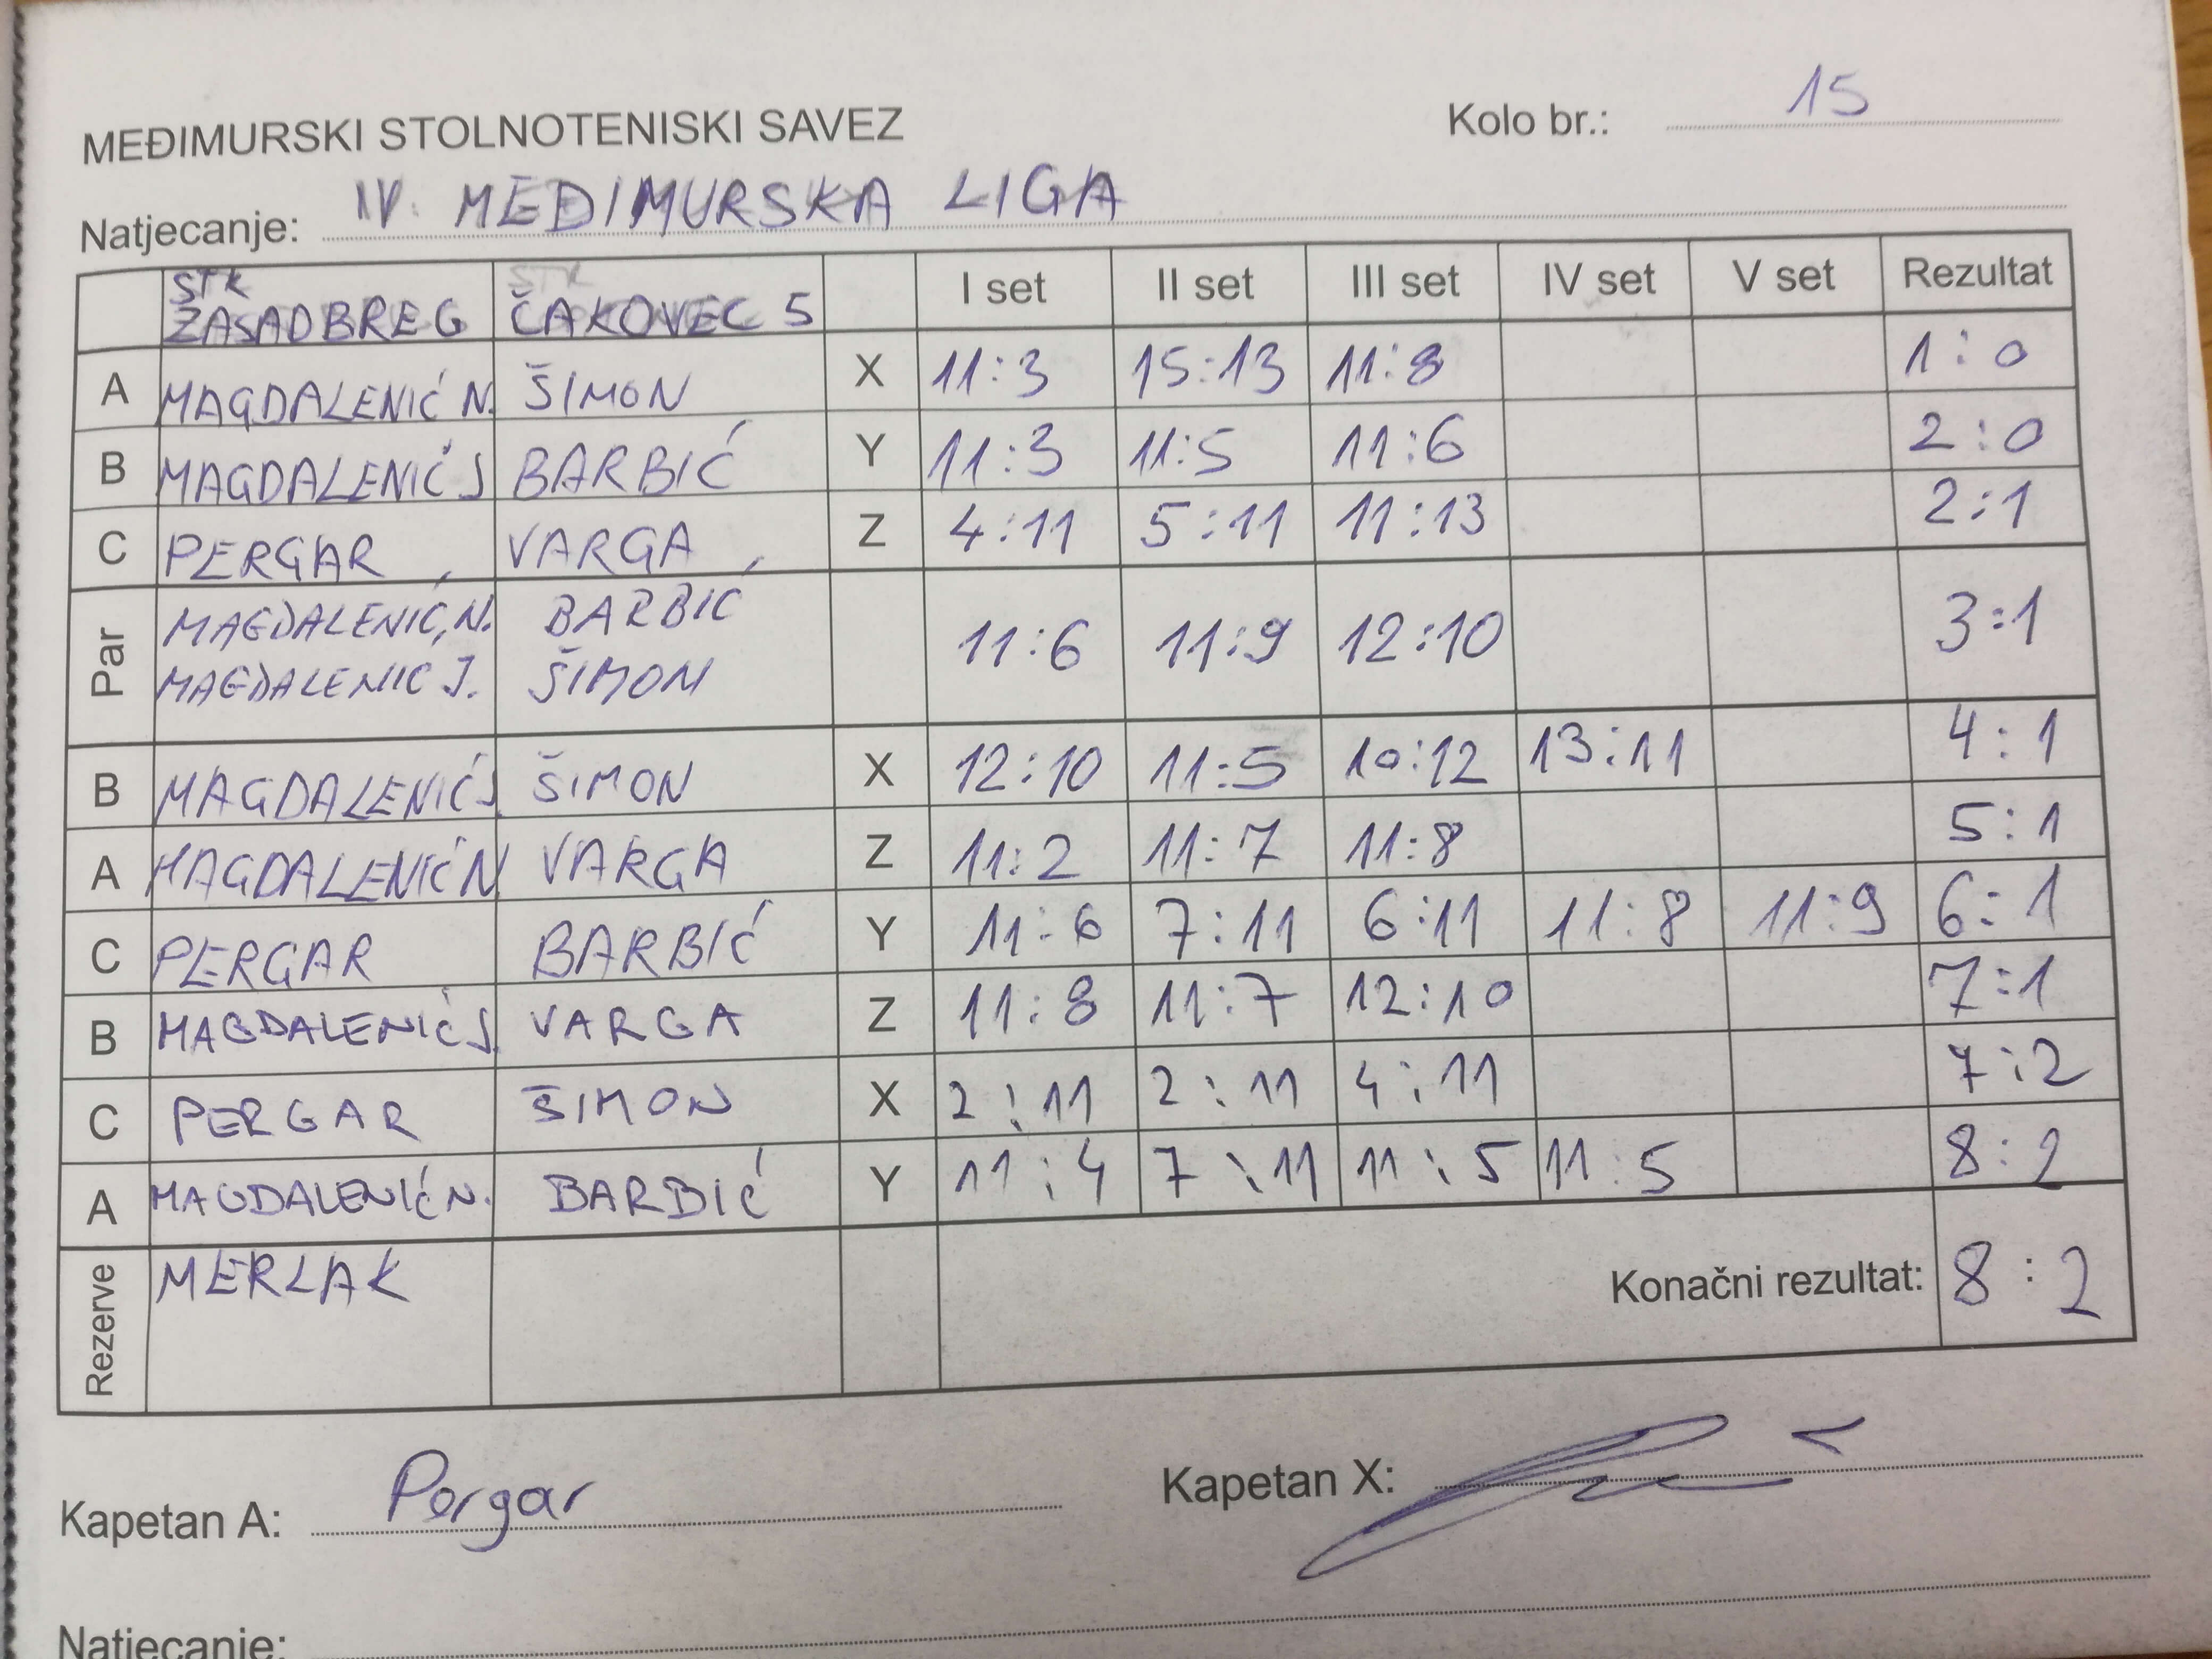 MEĐIMURSKI STOLNOTENISKI SAVEZ Kolo br.: 15
Natjecanje: IV. MEĐIMURSKA LIGA
STK ZASADBREG STK ČAKOVEC 5 I set II set III set IV set V set Rezultat
A MAGDALENIĆ N. ŠIMON X 11:3 15:13 11:8 1:0
B MAGDALENIĆ J BARBIĆ Y 11:3 11:5 11:6 2:0
C PERGAR VARGA Z 4:11 5:11 11:13 2:1
Par MAGDALENIĆ, N. BARBIĆ 11:6 11:9 12:10 3:1
MAGDALENIC J. ŠIMON
B MAGDALENIĆ J ŠIMON X 12:10 11:5 10:12 13:11 4:1
A MAGDALENIĆ N VARGA Z 11:2 11:7 11:8 5:1
C PERGAR BARBIĆ Y 11:6 7:11 6:11 11:8 11:9 6:1
B MAGDALENIĆ J. VARGA Z 11:8 11:7 12:10 7:1
C PERGAR ŠIMON X 2:11 2:11 4:11 7:2
A MAGDALENIĆ N. BARBIĆ Y 11:4 7:11 11:5 11:5 8:2
Rezerve MERLAK Konačni rezultat: 8:2
Kapetan A: Pergar Kapetan X:
Natjecanje: